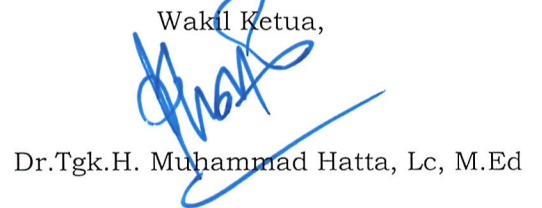 Wakil Ketua,
Dr.Tgk.H. Muhammad Hatta, Lc, M.Ed